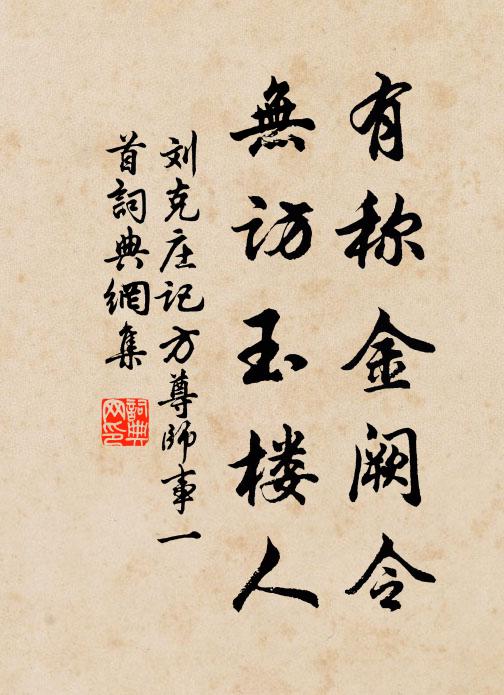 有称金阙令
無访玉楼人
刘克庄记方尊师事一
首詞典網集
詞典
网印